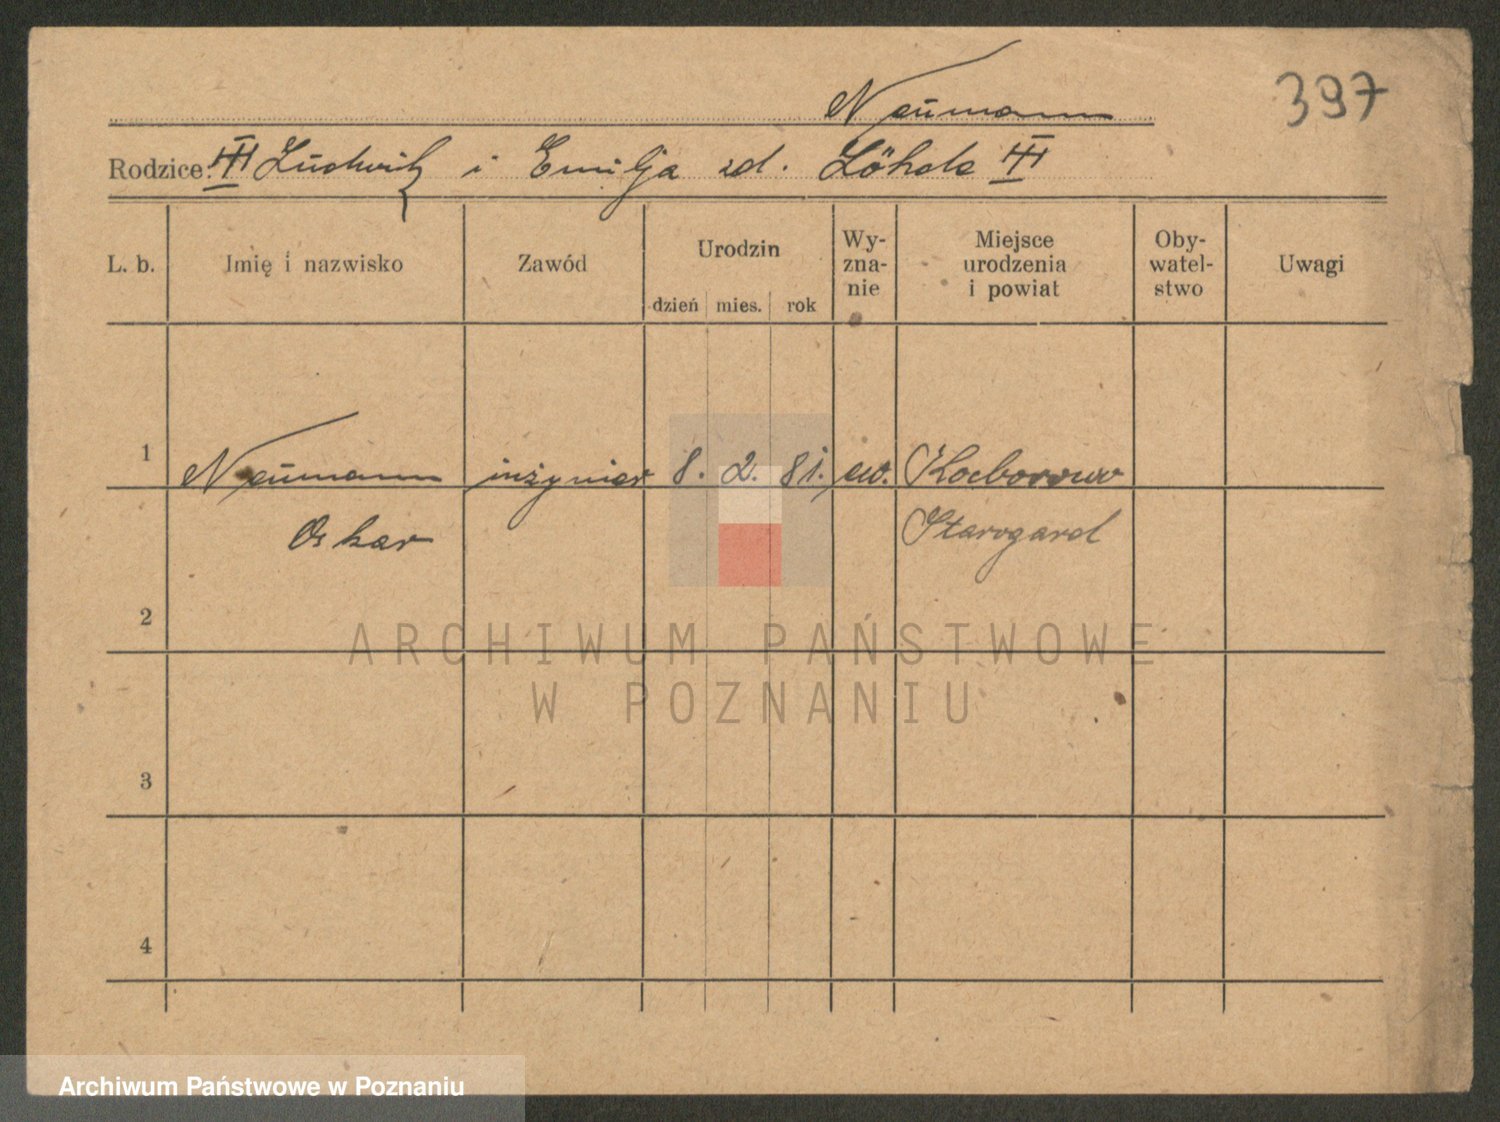 Neumann
397
Rodzice: Ludwik i Emilja zd. Löhde
L. b. Imię i nazwisko Zawód Urodzin dzień mies. rok Wyzna-nie Miejsce urodzenia i powiat Oby-watel-stwo Uwagi
1 Neumann inżynier 8. 2. 81. ew. Kocborowo
Oskar Starogard
2
ARCHIWUM PAŃSTWOWE
W POZNANIU
3
4
Archiwum Państwowe w Poznaniu